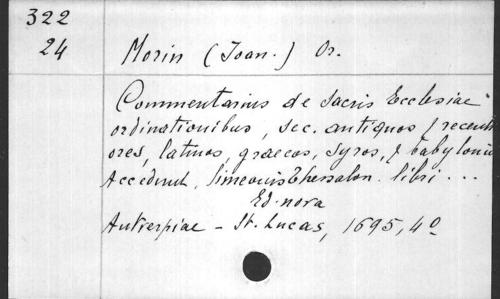 322
24
Morin (Joan.) Or.
Commentarius de sacris Ecclesiae
ordinationibus, sec. antiquos & recenti
ores, latinos, graecos, syros, & babylonio
Accedunt, Simeonis Thessalon. libri ...
Ed. nova
Antverpiae - St. Lucas, 1695, 4º